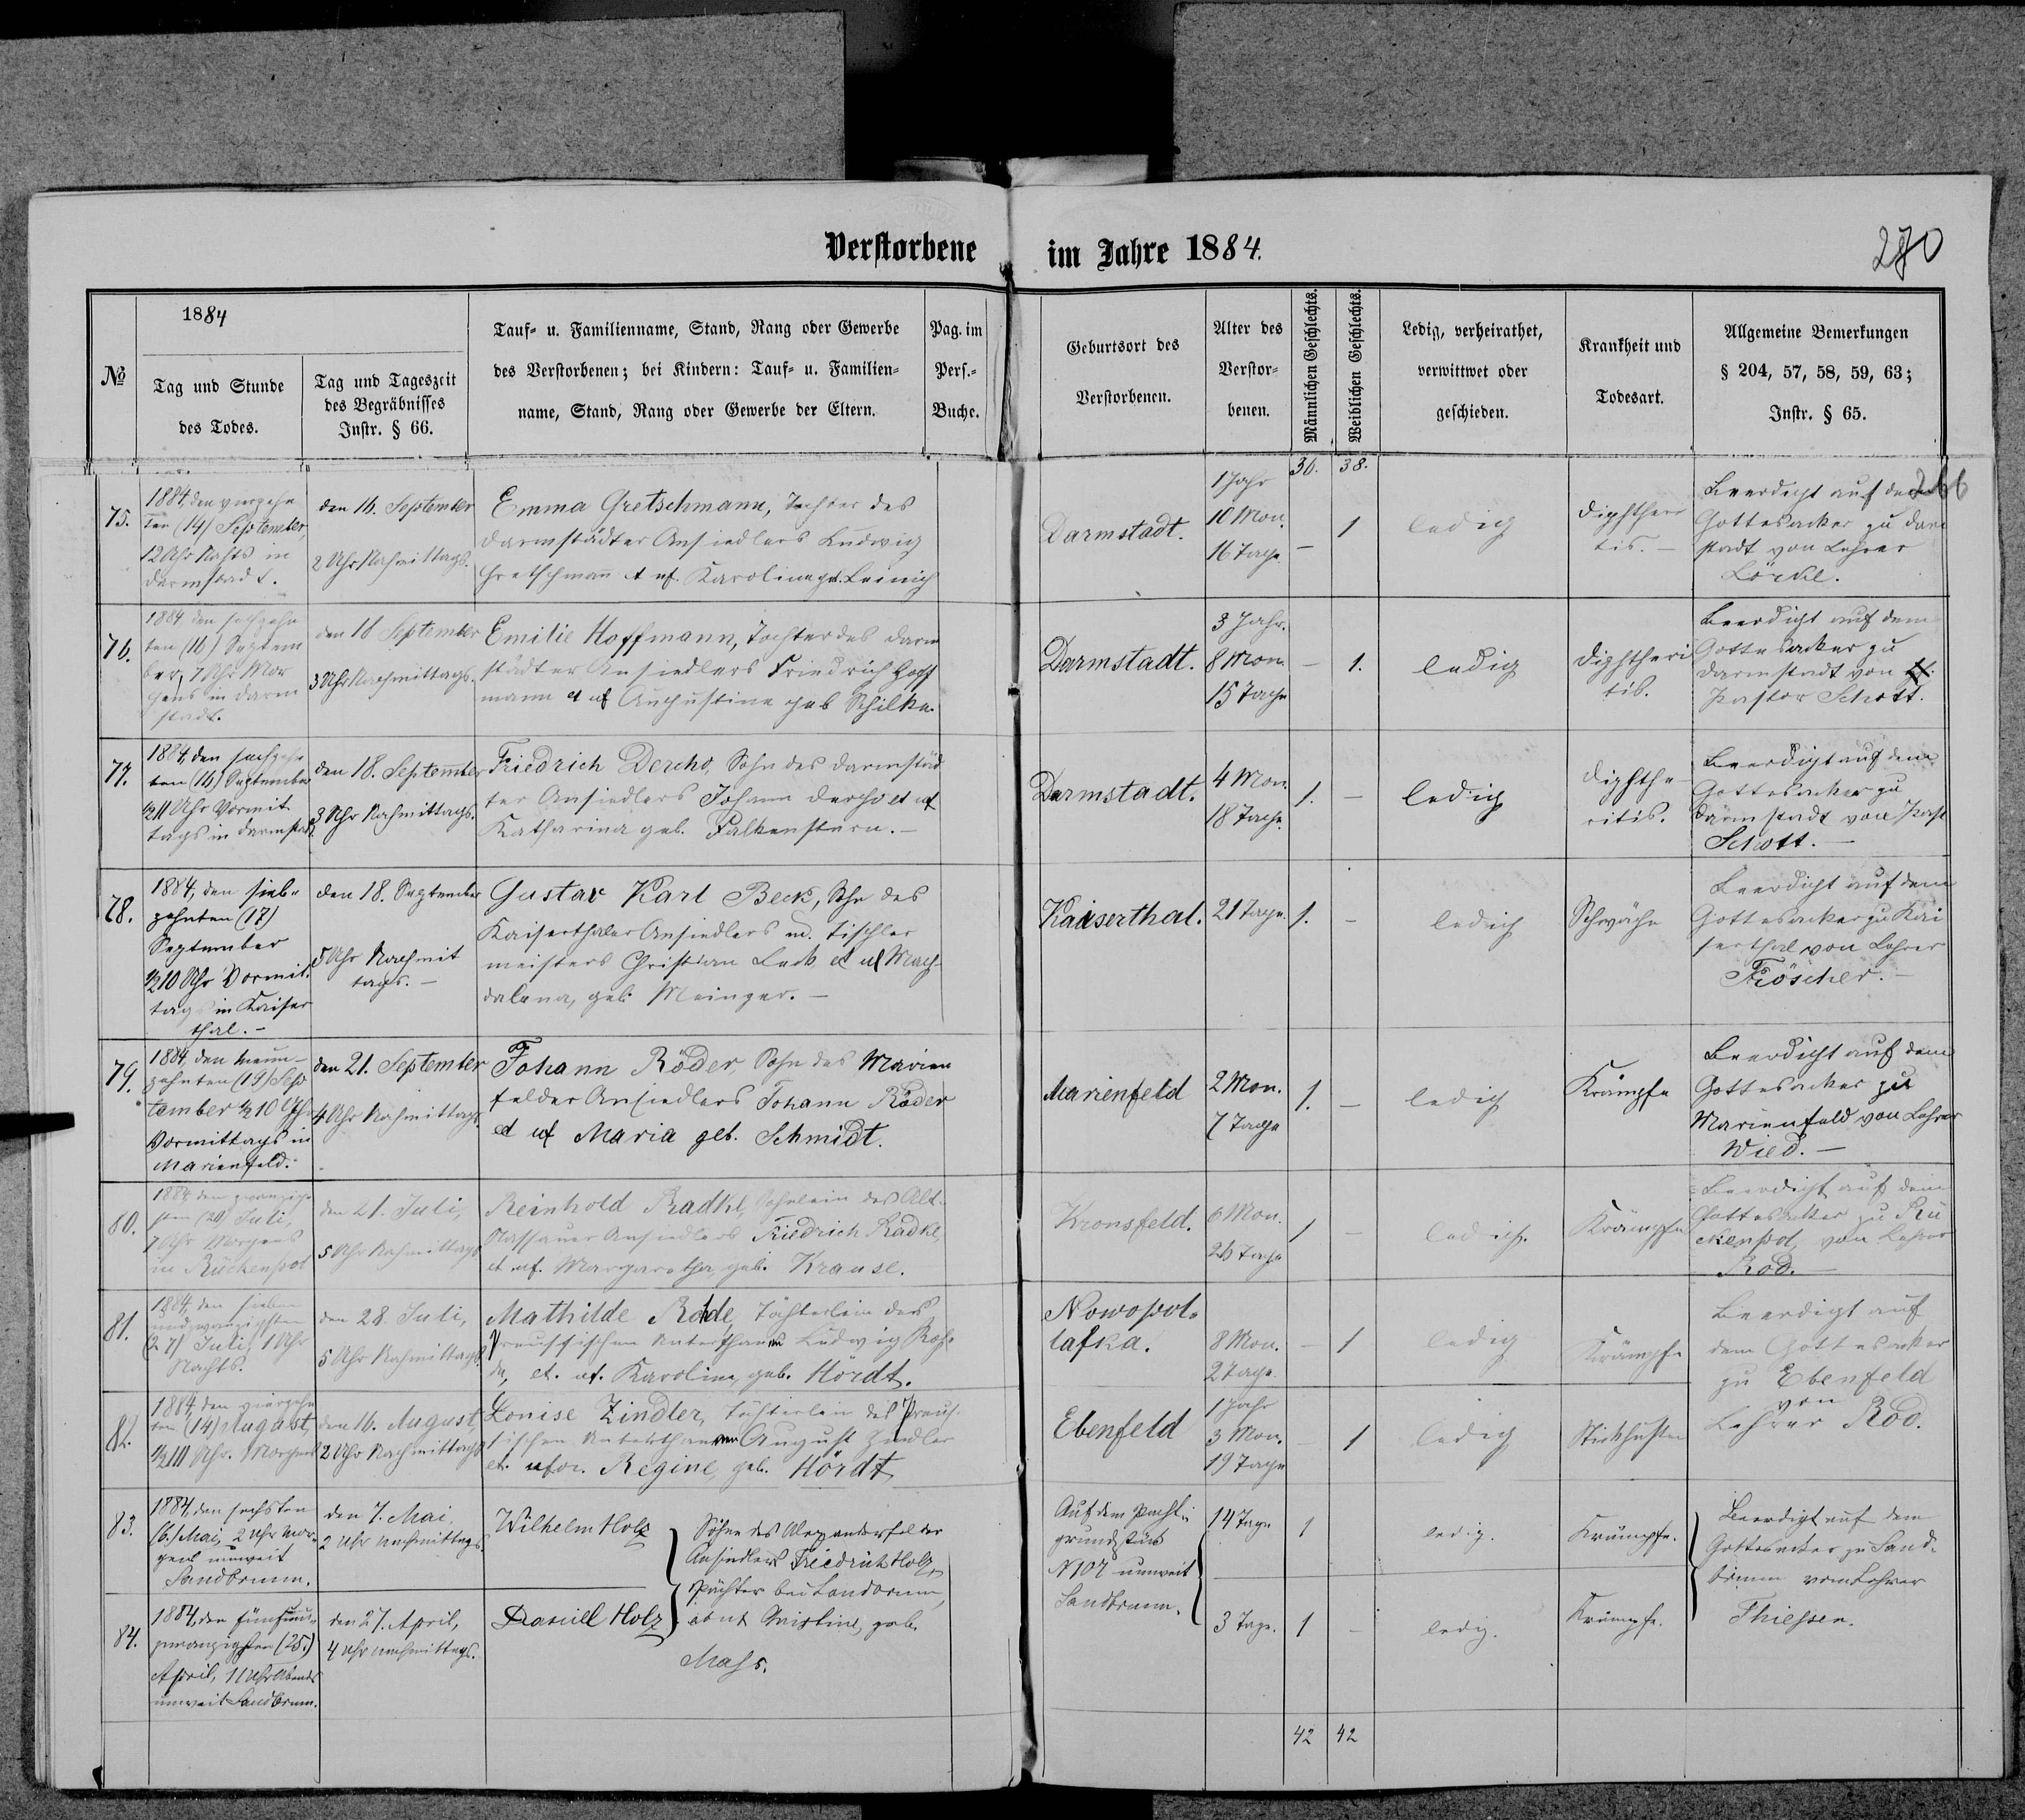 Verstorbene im Jahre 1884.
280
1884
№
Tag und Stunde
des Todes.
Tag und Tageszeit
des Begräbnisses
Instr. § 66.
Tauf- u. Familienname, Stand, Rang oder Gewerbe
des Verstorbenen; bei Kindern: Tauf- u. Familien-
name, Stand, Rang oder Gewerbe der Eltern.
Pag. im
Pers.-
Buche.
Geburtsort des
Verstorbenen.
Alter des
Verstor-
benen.
Männlichen Geschlechts.
Weiblichen Geschlechts.
Ledig, verheirathet,
verwittwet oder
geschieden.
Krankheit und
Todesart.
Allgemeine Bemerkungen
§ 204, 57, 58, 59, 63;
Instr. § 65.
38.
75.
1884, den vierzehn
ten (14) September,
12 Uhr Nachts in
Darmstadt.
den 16. September
2 Uhr Nachmittags.
Emma Gretschmann, Tochter des
Darmstädter Ansiedlers Ludwig
Gretschmann et uf. Karolina geb.
Darmstadt.
1 Jahr
10 Mon.
16 Tage
–
1
ledig
Diphthe
tis. –
Beerdigt auf dem
Gottesacker zu Darm
stadt von Lehrer
76.
1884 den sechzehn
ten (16) Septem
ber, 7 Uhr Mor
gens in Darm
stadt.
den 18 September
3 Uhr Nachmittags.
Emilie Hoffmann, Tochter des Darm
städter Ansiedlers Friedrich Hoff
mann et uf Augustine geb Schilke.
Darmstadt.
3 Jahr.
8 Mon.
15 Tage
–
1.
ledig
Diphtheri
tis.
Beerdigt auf dem
Gottesacker zu
Darmstadt von
Pastor Schott.
77.
1884, den sechzehn
ten (16) September
½11 Uhr Vormit
tags in Darmstadt
den 18. September
3 Uhr Nachmittags.
Friedrich Dercho, Sohn des Darmstäd
ter Ansiedlers Johann Dercho et uf
Katharina geb. Falkenstern. –
Darmstadt.
4 Mon.
18 Tage.
1.
–
ledig
Diphthe
ritis.
Beerdigt auf dem
Gottesacker zu
Darmstadt von Past
Schott. –
78.
1884, den sieb-
zehnten (17)
September
½10 Uhr Vormit
tags in Kaiser
thal. –
den 18. September
5 Uhr Nachmit
tags. –
Gustav Karl Beck, Sohn des
Kaiserthaler Ansiedlers u. Tischler
meisters Christian Beck et uf Mag-
dalena, geb. Meinzer. –
Kaiserthal.
21 Tage.
1.
–
ledig
Schwäche
Beerdigt auf dem
Gottesacker zu Kai
serthal von Lehrer
Fröscher. –
79.
1884, den neun-
zehnten (19) Sep
tember ½10 Uhr
Vormittags in
Marienfeld.
den 21. September
4 Uhr Nachmittags
Johann Röder, Sohn des Marien
felder Ansiedlers Johann Röder
et uf Maria geb. Schmidt.
Marienfeld
2 Mon.
7 Tage
1.
–
ledig
Krämpfe
Beerdigt auf dem
Gottesacker zu
Marienfeld von Lehrer
Wied. –
80.
1884 den zwanzig
sten (20) Juli,
7 Uhr Morgens
in Rückenpol
den 21. Juli,
5 Uhr Nachmittags
Reinhold Radke, Söhnlein des Alt-
Nassauer Ansiedlers Friedrich Radke,
et uf. Margaretha, geb. Krause.
Kronsfeld.
6 Mon.
Tage
1
–
ledig.
Krämpfe
Beerdigt auf dem
Gottesacker zu Rü
ckenpol, von Lehrer
Rod. –
81.
1884, den sieben
undzwanzigsten
(27) Juli, 1 Uhr
Nachts.
den 28. Juli,
5 Uhr Nachmittags.
Mathilde Rohde, Töchterlein des
Preussischen Unterthanen Ludwig Roh-
de, et. uf. Karoline, geb. Hördt.
Nowopol-
tafka.
8 Mon.
2 Tage.
–
1
ledig
Krämpfe
Beerdigt auf
dem Gottesacker
zu Ebenfeld
von
Lehrer Rod.
82.
1884, den vierzehn
ten (14) August,
½11 Uhr. Morgens
den 16. August,
2 Uhr Nachmittags
Louise Zindler, Töchterlein des Preus-
sischen Unterthanen August Zindler
et. uxor. Regine, geb. Hördt
Ebenfeld
1 Jahr
3 Mon.
19 Tage
–
1
ledig
Stickhusten
83.
1884, den sechsten
(6.) Mai, 2 Uhr Mor-
gens unweit
Sandbrunn.
den 7. Mai.
2 Uhr Nachmittags.
Wilhelm Holz
Söhne des Alexanderfelder
Ansiedlers Friedrich Holz,
Pächter bei Sandbrunn,
et ux Christine, geb.
Mass.
Auf dem Pacht-
grundstück
unweit
Sandbrunn.
14 Tage
1
ledig.
Krämpfe.
Beerdigt auf dem
Gottesacker zu Sand-
brunn vom Lehrer
Thiessen.
84.
1884, den fünfund-
zwanzigsten (25.)
April, 11 Uhr Abends
unweit Sandbrunn.
den 27. April,
4 Uhr Nachmittags.
Daniell Holz
3 Tage.
1
–
ledig.
Krämpfe.
42
42